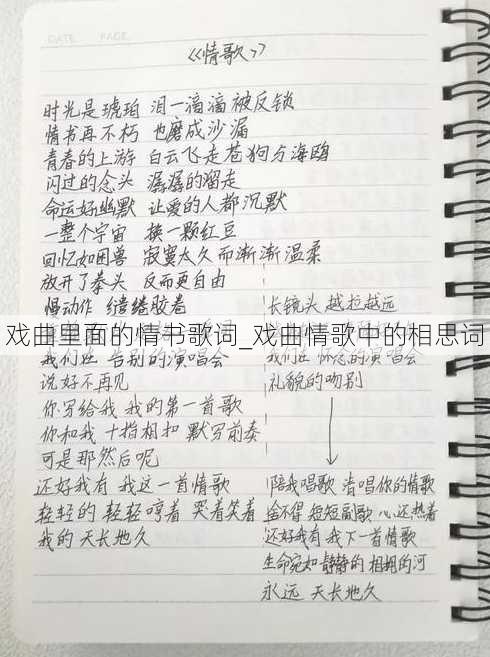 DATE PAGE
《情歌》
时光是琥珀 泪一滴滴被反锁
情书再不朽 也磨成沙漏
青春的上游 白云飞走苍狗与海鸥
闪过的念头 潺潺的溜走
命运好幽默 让爱的人都沉默
一整个宇宙 换一颗红豆
回忆如困兽 寂寞太久而渐渐温柔
放开了拳头 反而更自由
慢动作 缱绻胶卷
戏曲里面的情书歌词_戏曲情歌中的相思词
我们在 告别的演唱会
说好不再见
你写给我 我的第一首歌
你和我 十指相扣 默写前奏
可是那然后呢
还好我有 我这一首情歌
轻轻的 轻轻哼着 哭着笑着
我的 天长地久
长镜头 越拉越远
我们在 怀念的演唱会
礼貌的吻别
陪我唱歌 清唱你的情歌
舍不得 短短副歌 心还热着
还好我有 我下一首情歌
生命宛如 静静的 相拥的河
永远 天长地久